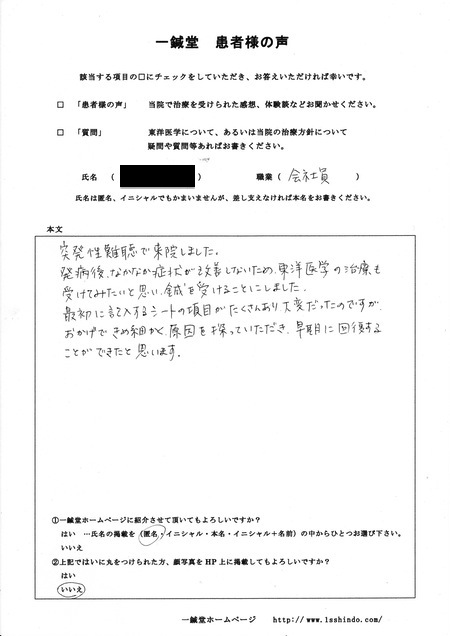 一鍼堂 患者様の声
該当する項目の□にチェックをしていただき、お答えいただければ幸いです。
□ 「患者様の声」 当院で治療を受けられた感想、体験談などお聞かせください。
□ 「質問」 東洋医学について、あるいは当院の治療方針について
疑問や質問等あればお書きください。
氏名 ( ) 職業 ( 会社員 )
氏名は匿名、イニシャルでもかまいませんが、差し支えなければ本名をお書きください。
本文
突発性難聴で来院しました。
発病後、なかなか症状が改善しないため、東洋医学の治療も
受けてみたいと思い、鍼を受けることにしました。
最初に記入するシートの項目がたくさんあり、大変だったのですが、
おかげできめ細かく、原因を探っていただき、早期に回復する
ことができたと思います。
①一鍼堂ホームページに紹介させて頂いてもよろしいですか?
はい …氏名の掲載を (匿名・イニシャル・本名・イニシャル+名前) の中からひとつお選び下さい。
いいえ
②上記ではいに丸をつけられた方、顔写真をHP上に掲載してもよろしいですか?
はい
いいえ
一鍼堂ホームページ http://www.1sshindo.com/